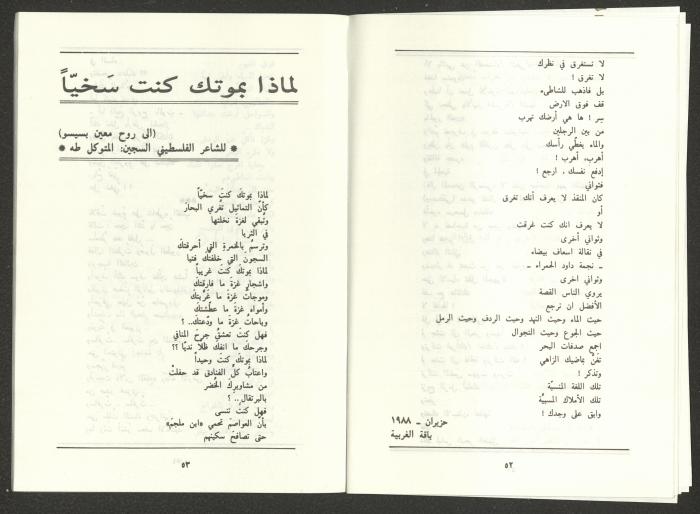 لا تستغرق في نظرك
لا تغرق !
بل فاذهب للشاطىء
قف فوق الارض
سِر ! ها هي أرضك تهرب
من بين الرجلين
والماء يغطّي رأسك
أهرب، أهرب !
إدفع نفسك . ارجع !
فثواني
كان المنقذ لا يعرف أنك تغرق
أو
لا يعرف انك كنت غرقت
وثواني أخرى
في نقالة اسعاف بيضاء
ـ نجمة داود الحمراء ـ
وثواني اخرى
يروي الناس القصة
الأفضل ان ترجع
حيث الماء وحيث النهد وحيث الردف وحيث الرمل
حيث الجوع وحيث التجوال
اجمع صدفات البحر
تغنّ بماضيك الزاهي
وتذكر !
تلك اللغة المنسيّة
تلك الأملاك المسبيّة
وابق على وجدك !
حزيران ـ ١٩٨٨
باقة الغربية
٥٢
لماذا بموتك كنت سَخيّاً
(الى روح معين بسيسو)
* للشاعر الفلسطيني السجين: المتوكل طه *
لماذا بموتكَ كنتَ سخيّاً
كأنّ التماثيل تُغري البحارَ
وتُبقي لغزةَ نخلتها
في الثريا
وترسمُ بالخمرةِ التي أحرقتكَ
السجونَ التي خلفتك فتيا
لماذا بموتكَ كنتَ غريباً
واشجارُ غزةَ ما فارقتكَ
وموجاتُ غزةَ ما غرّبتكَ
وأمواهُ غزةَ ما عطّشتكَ
وباحاتُ غزةَ ما ودّعتكَ.. ؟
فهل كنتَ تعشقُ جرحَ المنافي
وجرحكَ ما انفكَ ظلا نديّا ؟؟
لماذا بموتكَ كنتَ وحيداً
واعتابُ كلِّ الفنادق قد حفلتْ
من مشاويركَ الخُضر
بالبرتقال.. ؟
فهل كنتَ تنسى
بأنّ العواصمَ تحمي «ابن ملجمَ»
حتى تصافحَ سكينهم
٥٣